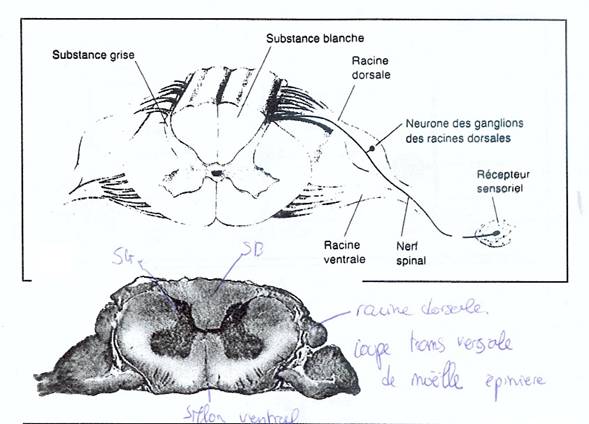 Substance blanche
Substance grise
Racine
dorsale
Neurone des ganglions
des racines dorsales
Récepteur
sensoriel
Racine
ventrale
Nerf
spinal
SG
SB
racine dorsale.
coupe transversale
de moëlle épinière
sillon ventral